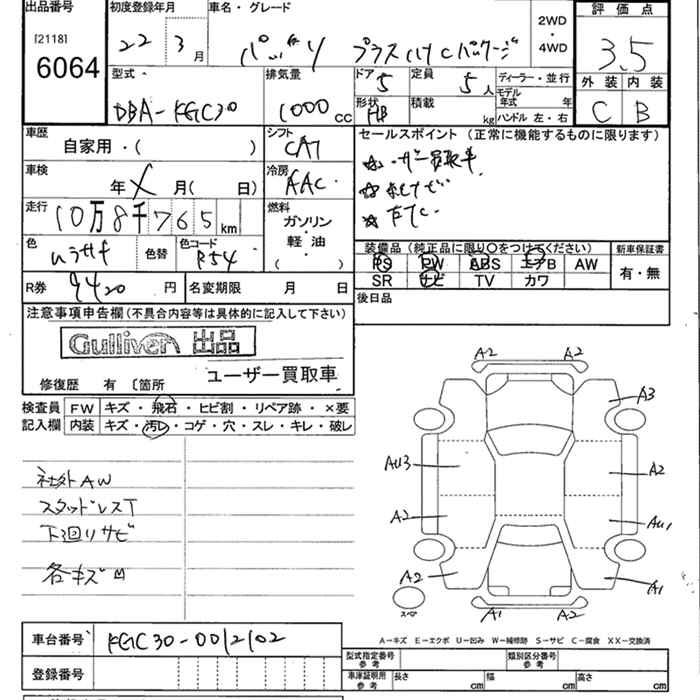 出品番号
[2118]
6064
初度登録年月
22年 3月
車名・グレード
パッソ プラスハナ Cパッケージ
2WD
・
4WD
評価点
3.5
外装 内装
C B
型式・
DBA-KGC30
排気量
1000 CC
ドア 5
形状 HB
定員 5人
積載 kg
ディーラー・並行
モデル年式 年
ハンドル 左・右
車歴
自家用・( )
シフト
CAT
セールスポイント(正常に機能するものに限ります)
★ユーザー買取車
★ナビ
★ETC
車検
年 X 月( 日)
冷房
AAC
走行
10万8千765km
燃料
ガソリン
・
軽・油
・
( )
色
色替
色コード
R54
装備品(純正品に限り○をつけてください)
PS PW ABS エアB AW
SR ナビ TV カワ
新車保証書
有・無
R券 9420円
名変期限 月 日
後日品
注意事項申告欄(不具合内容等は具体的に記入して下さい)
Gulliver 出品
ユーザー買取車
修復歴 有 〔箇所
検査員記入欄
FW キズ・飛石・ヒビ割・リペア跡・×要
内装 キズ・汚レ・コゲ・穴・スレ・キレ・破レ
社外AW
スタッドレスT
下廻リサビ
各キズ凹
A2 A2
A3
AU3
A2
A2
AU1
A2
A1
A1 A2
スペア
A-キズ E-エクボ U-凹み W-補修跡 S-サビ C-腐食 XX-交換済
車台番号 KGC30-0012102
登録番号
型式指定番号 参考
類別区分番号 参考
車庫証明用 参考
長さ cm 幅 cm 高さ cm